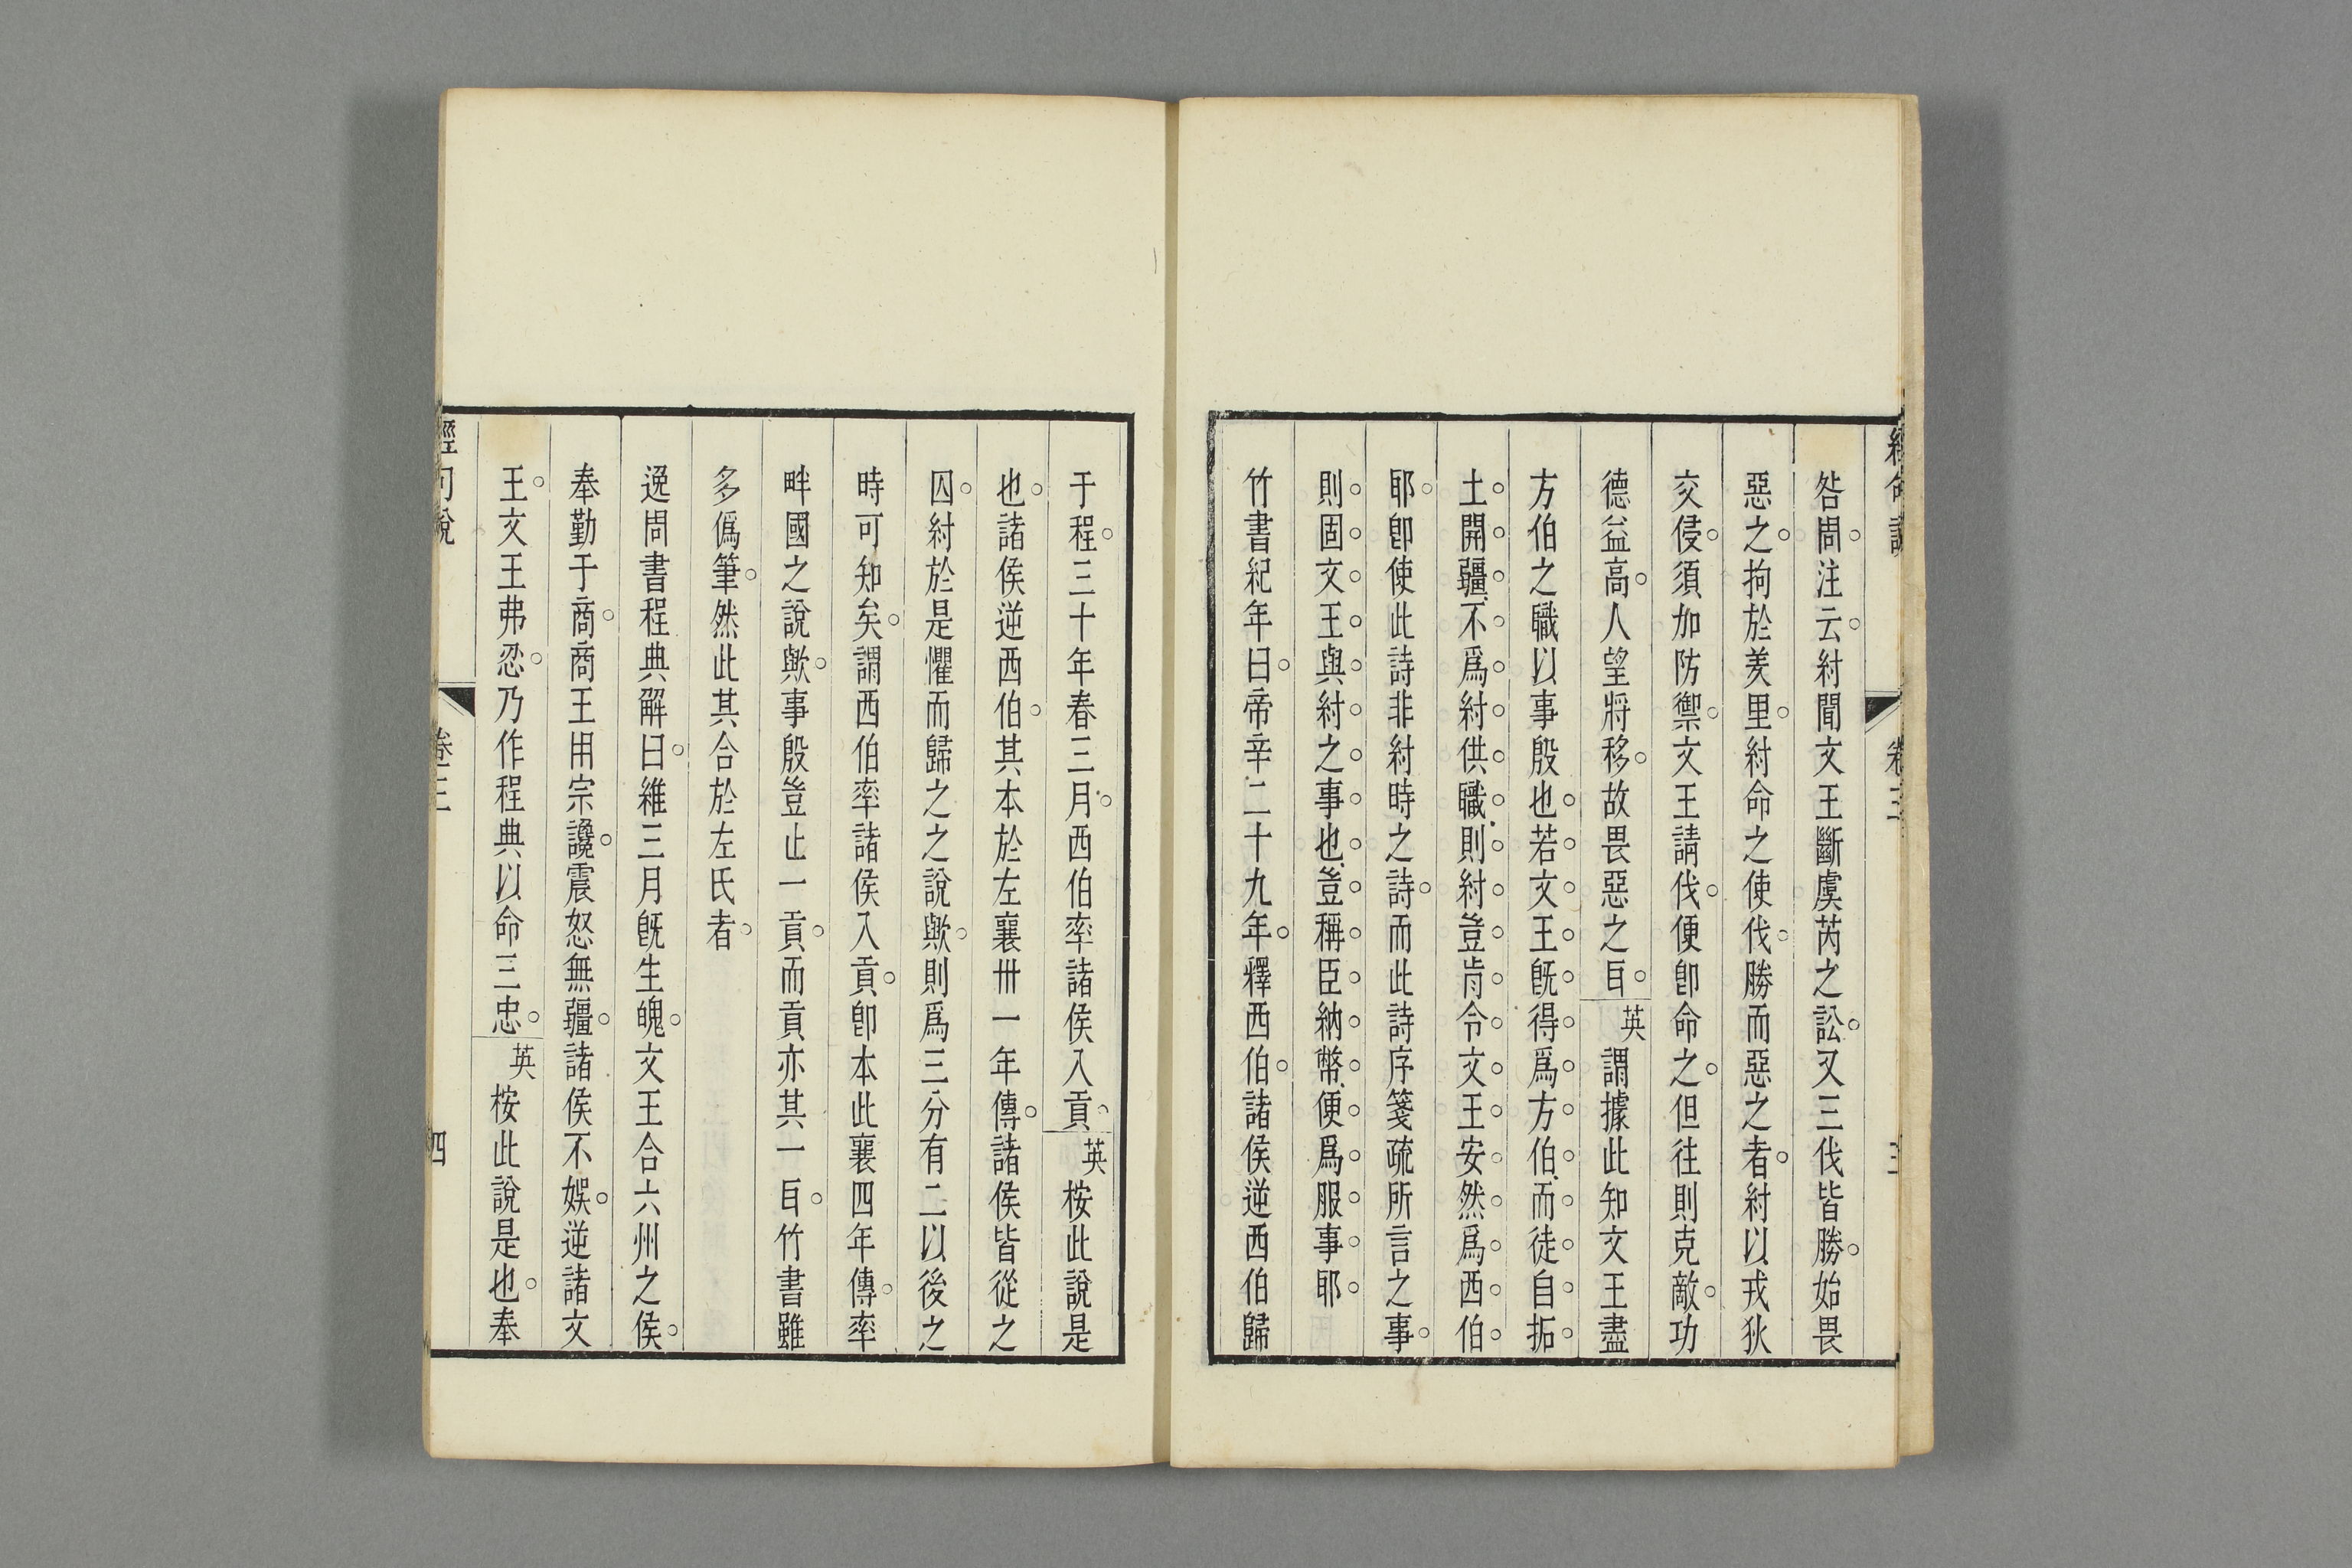 咎周注云紂聞文王斷虞芮之訟又三伐皆勝始畏
惡之拘於羑里紂命之使伐勝而惡之者紂以戎狄
交侵須加防禦文王請伐便卽命之但往則克敵功
德益高人望將移故畏惡之㠯英謂據此知文王盡
方伯之職以事殷也若文王旣得爲方伯而徒自拓
土開疆不爲紂供職則紂豈肯令文王安然爲西伯
耶卽使此詩非紂時之詩而此詩序箋疏所言之事
則固文王與紂之事也豈稱臣納幣便爲服事耶
竹書紀年曰帝辛二十九年釋西伯諸侯逆西伯歸
于程三十年春三月西伯率諸侯入貢英桉此說是
也諸侯逆西伯其本於左襄卅一年傳諸侯皆從之
囚紂於是懼而歸之之說歟則爲三分有二以後之
時可知矣謂西伯率諸侯入貢卽本此襄四年傳率
畔國之說歟事殷豈止一貢而貢亦其一㠯竹書雖
多僞筆然此其合於左氏者
逸周書程典解曰維三月旣生魄文王合六州之侯
奉勤于商商王用宗讒震怒無疆諸侯不娛逆諸文
王文王弗忍乃作程典以命三忠英桉此說是也奉
經句說
卷三
四